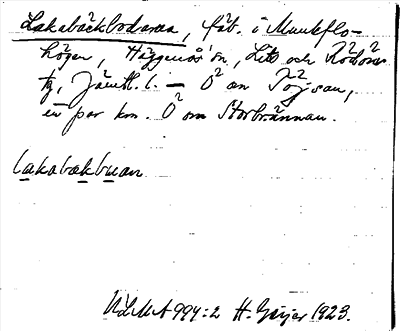 Lakabäckbodarna, fäb. i Munkflo-
högen, Häggenås sn, Lits och Rödöns
tg, Jämtl. l. — Ö an Töjsan,
ett par km. Ö om Storbrännan.
lakabakbuan
ULMA 994:2 H. Geijer 1923.